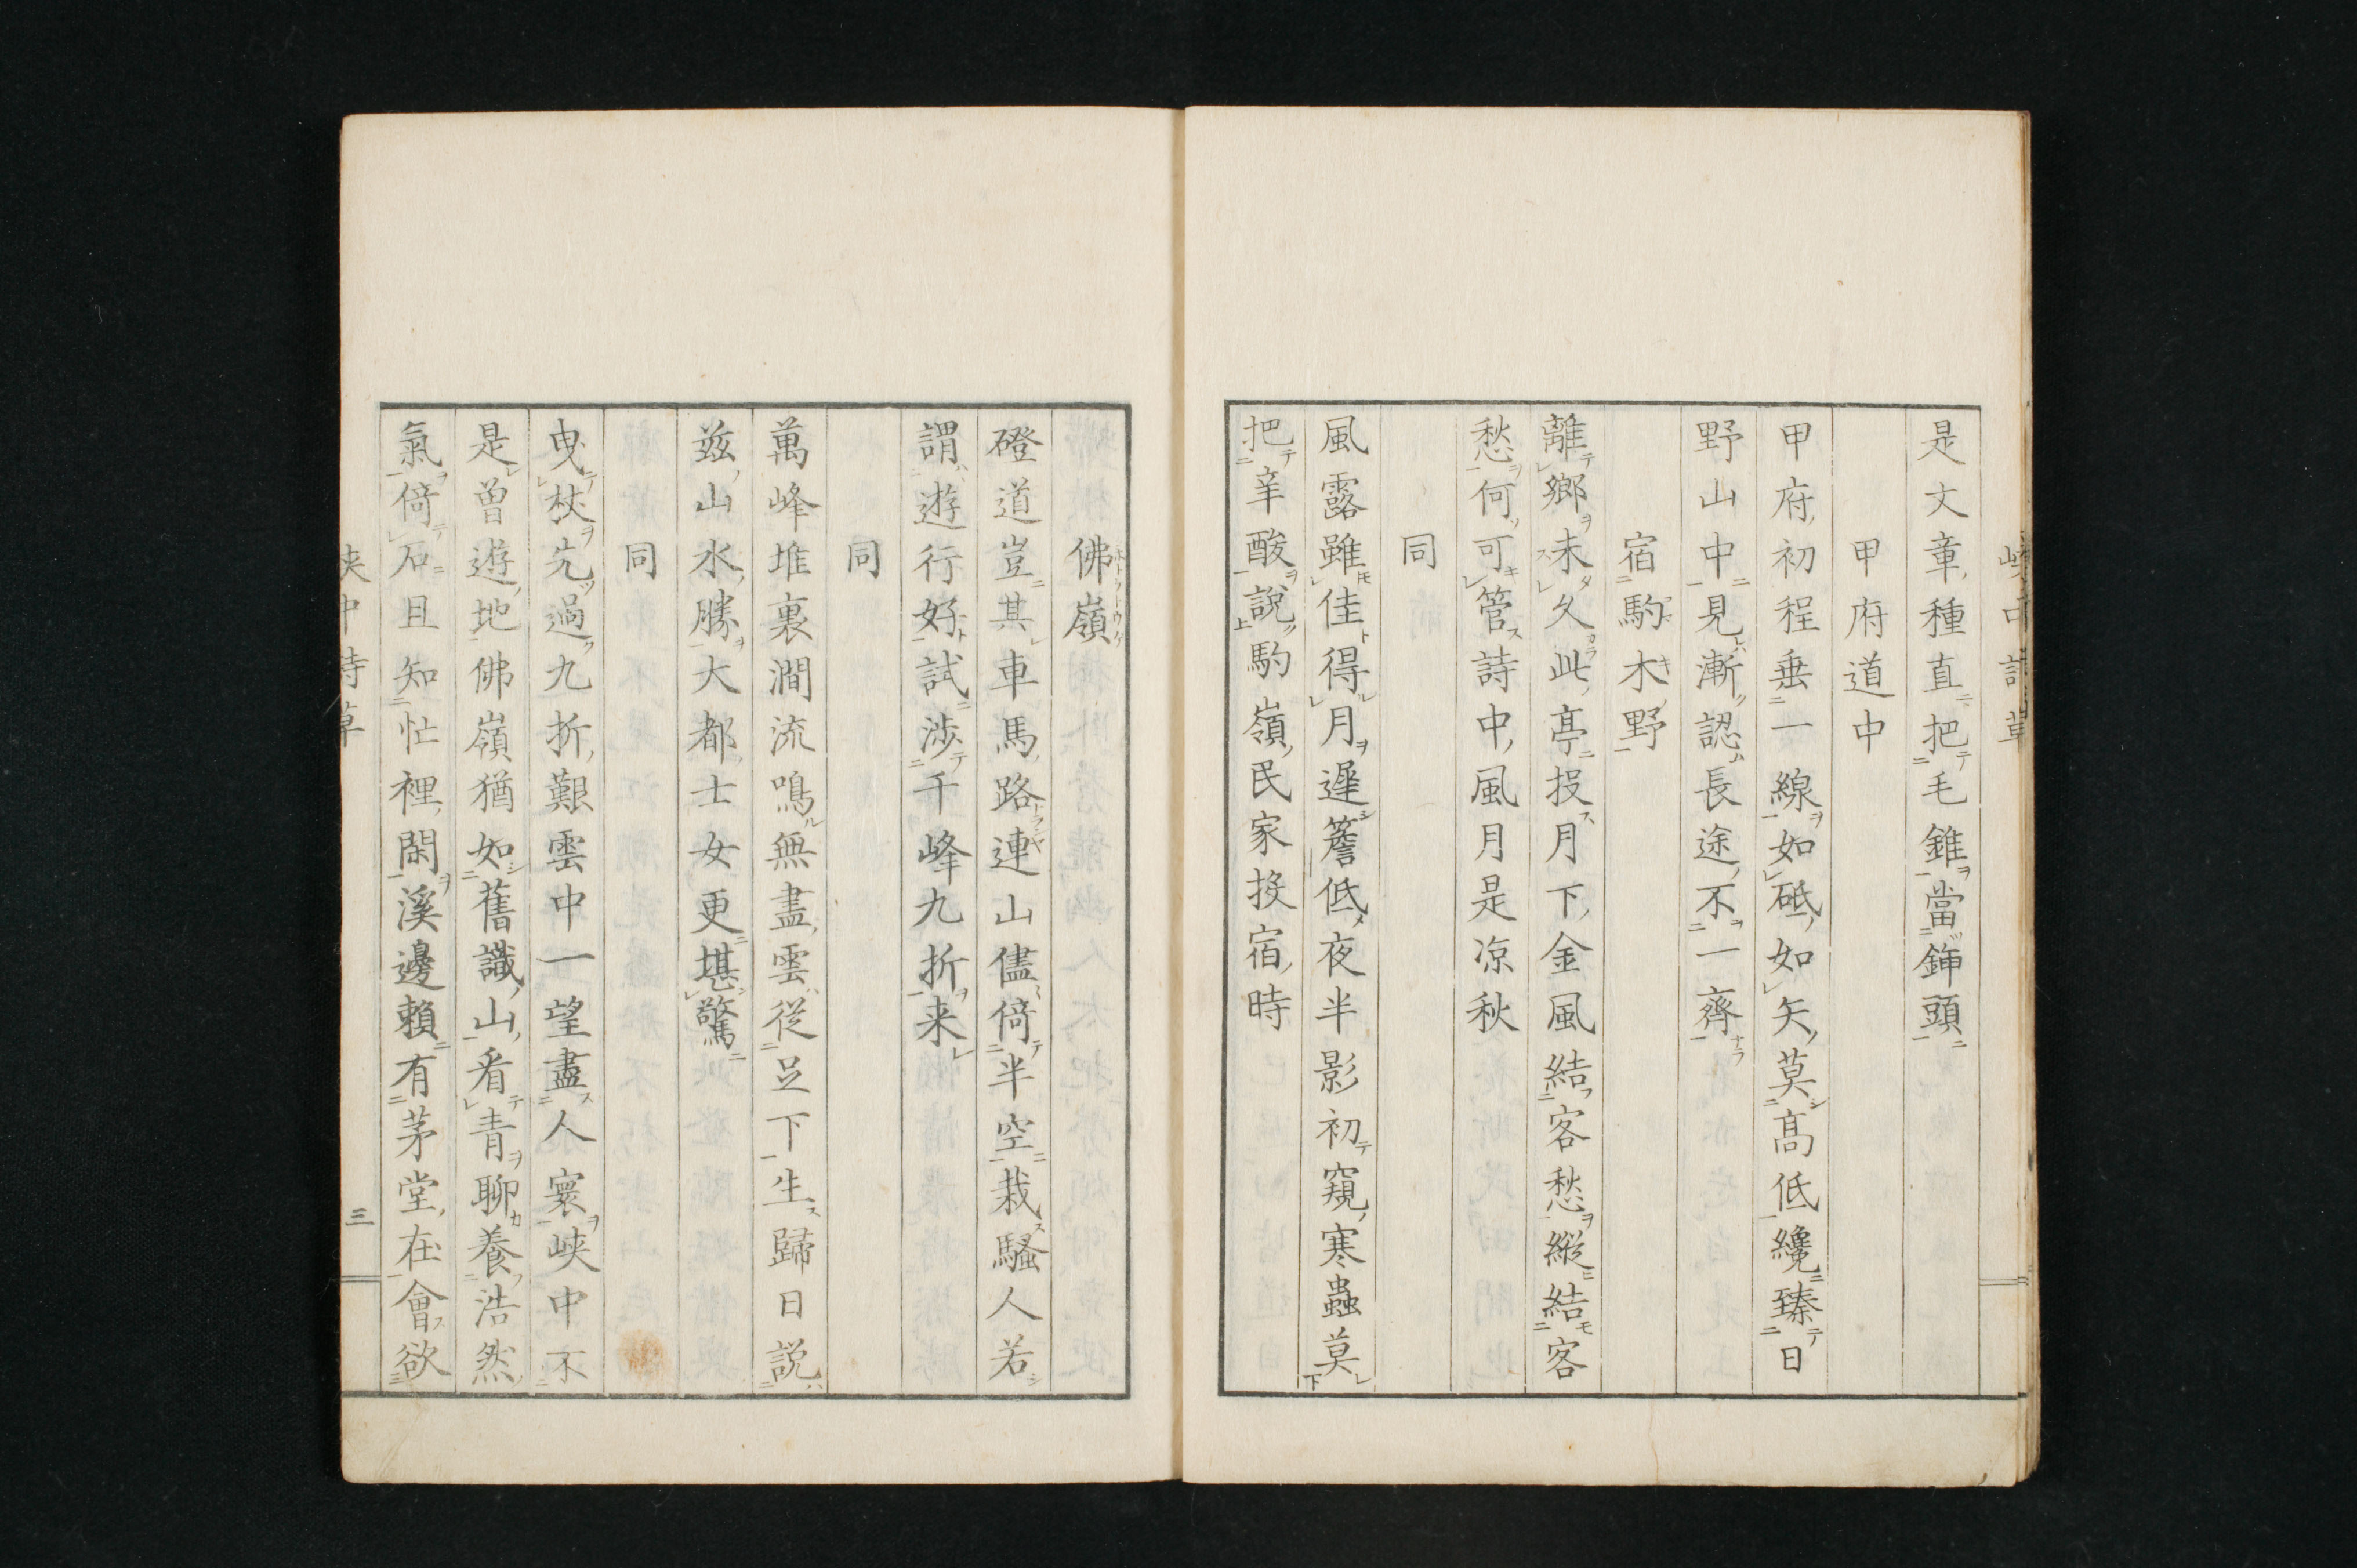 峡中詩草
是文章種直把毛錐當鉮頭
甲府道中
甲府初程垂一線如砥如矢莫髙低纔臻日
野山中見漸認長途不一齊
宿駒木野
離鄉未久此亭投月下金風結客愁縱結客
愁何可管詩中風月是凉秋
同
風露雖佳得月遲簷低夜半影初窺寒蟲莫
把辛酸說駒嶺民家投宿時
佛嶺
磴道豈其車馬路連山儘倚半空栽騷人若
謂遊行好試涉千峰九折来
同
萬峰堆裏澗流鳴無盡雲從足下生歸日説
兹山水勝大都士女更堪驚
同
曳杖先過九折艱雲中一望盡人寰峡中不
是曾遊地佛嶺猶如舊識山看青聊養浩然
氣倚石且知忙裡閑溪邊賴有茅堂在會欲
峡中詩草
三